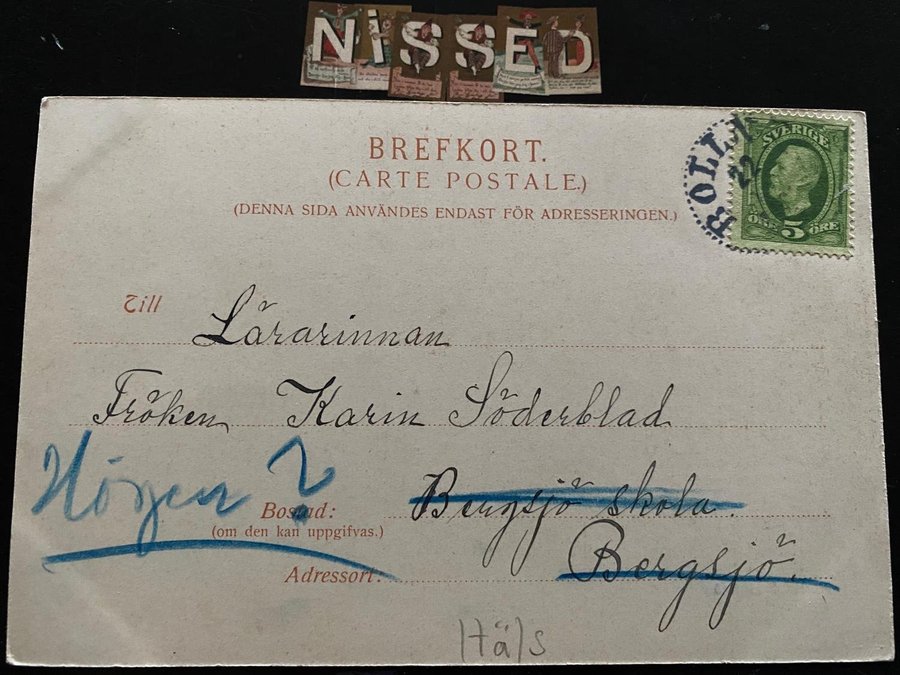 NiSSED
BREFKORT.
(CARTE POSTALE.)
(DENNA SIDA ANVÄNDES ENDAST FÖR ADRESSERINGEN.)
BOLLN
22
SVERIGE
5
ÖRE ÖRE
Till Lärarinnan
Fröken Karin Söderblad
Högen?
Bostad: Bergsjö skola.
(om den kan uppgifvas.)
Adressort: Bergsjö.
Häls